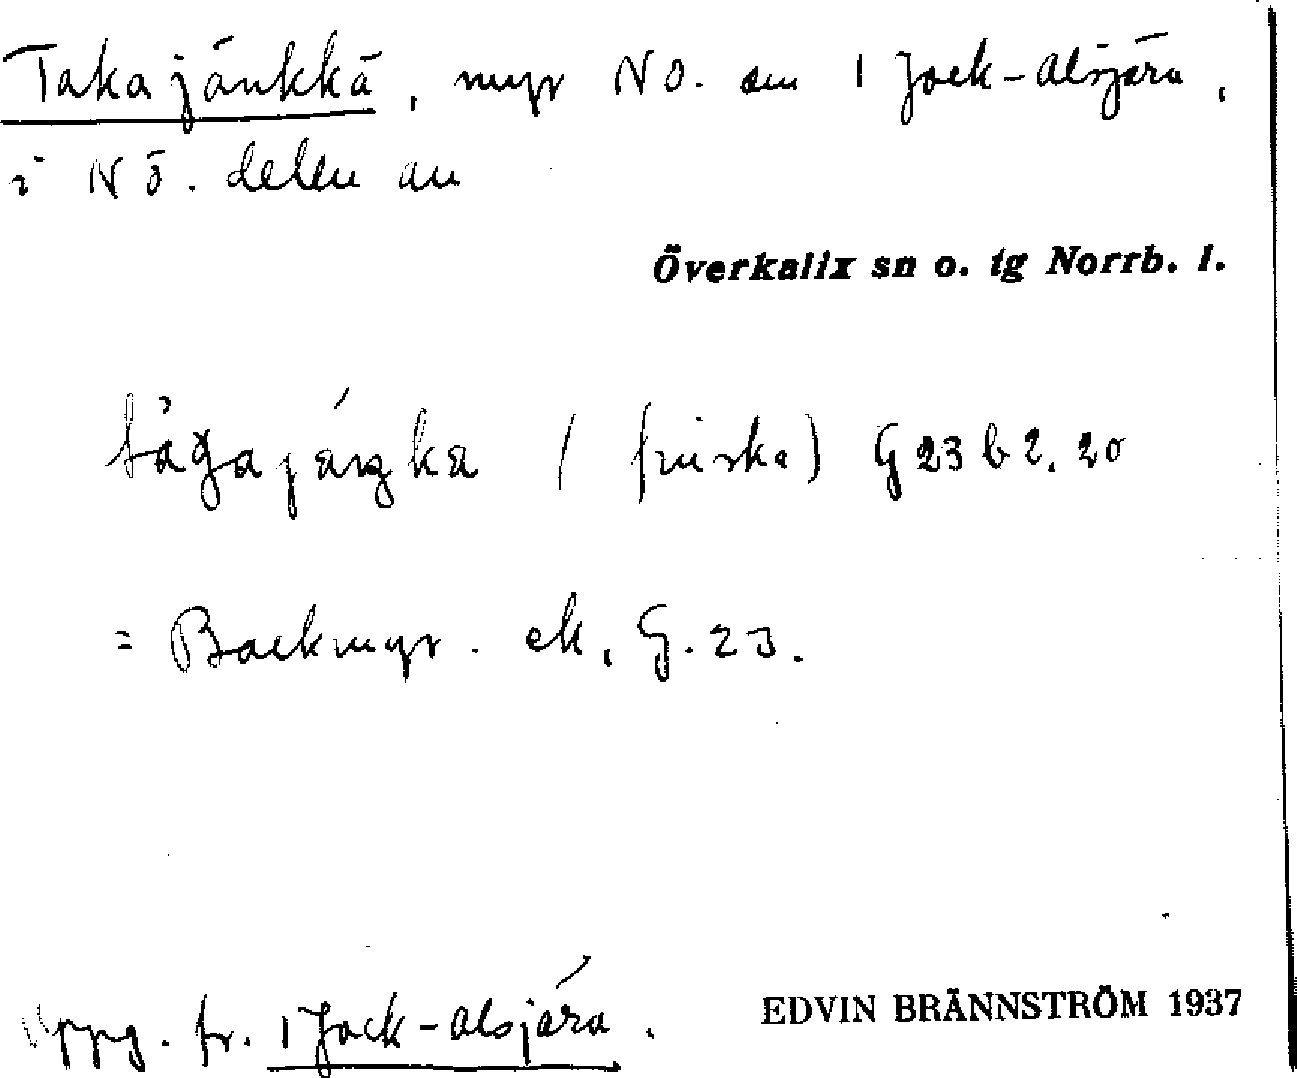 Takajänkkä, myr NO. om 1 Jock-alsjärv,
i NÖ. delen av
Överkalix sn o. tg Norrb. l.
(finska) G 23 b 2. 20
= Backmyr. ek. G. 23.
Uppg. fr. 1 Jock-alsjärv.
EDVIN BRÄNNSTRÖM 1937